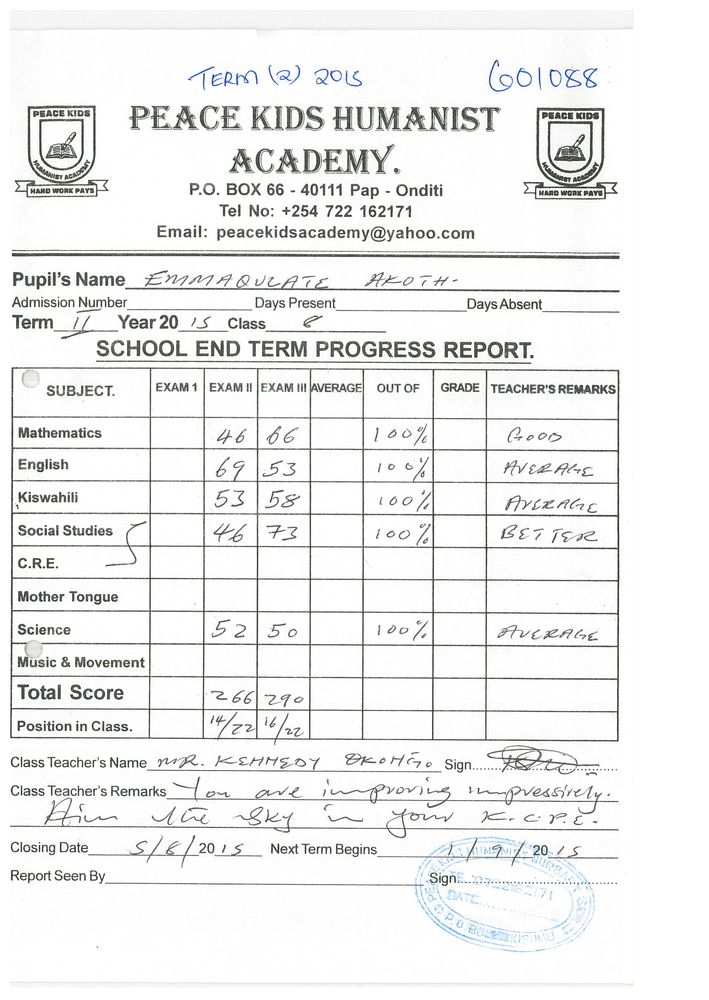 TERM (2) 2015 G01088
PEACE KIDS HUMANIST ACADEMY HARD WORK PAYS
PEACE KIDS HUMANIST
ACADEMY.
PEACE KIDS HUMANIST ACADEMY HARD WORK PAYS
P.O. BOX 66 - 40111 Pap - Onditi
Tel No: +254 722 162171
Email: peacekidsacademy@yahoo.com
Pupil's Name EMMAQULATE AKOTH-
Admission Number Days Present Days Absent
Term II Year 20 15 Class 8
SCHOOL END TERM PROGRESS REPORT.
SUBJECT. EXAM 1 EXAM II EXAM III AVERAGE OUT OF GRADE TEACHER'S REMARKS
Mathematics 46 66 100% GOOD
English 69 53 100% AVERAGE
Kiswahili 53 58 100% AVERAGE
Social Studies 46 73 100% BETTER
C.R.E.
Mother Tongue
Science 52 50 100% AVERAGE
Music & Movement
Total Score 266 290
Position in Class. 14/22 16/22
Class Teacher's Name MR. KENNEDY OKONGO Sign
Class Teacher's Remarks You are improving impressively.
Aim the sky in your K.C.P.E.
Closing Date 5/8/2015 Next Term Begins 1/9/2015
Report Seen By Sign
DATE
P.O. BOX KISUMU